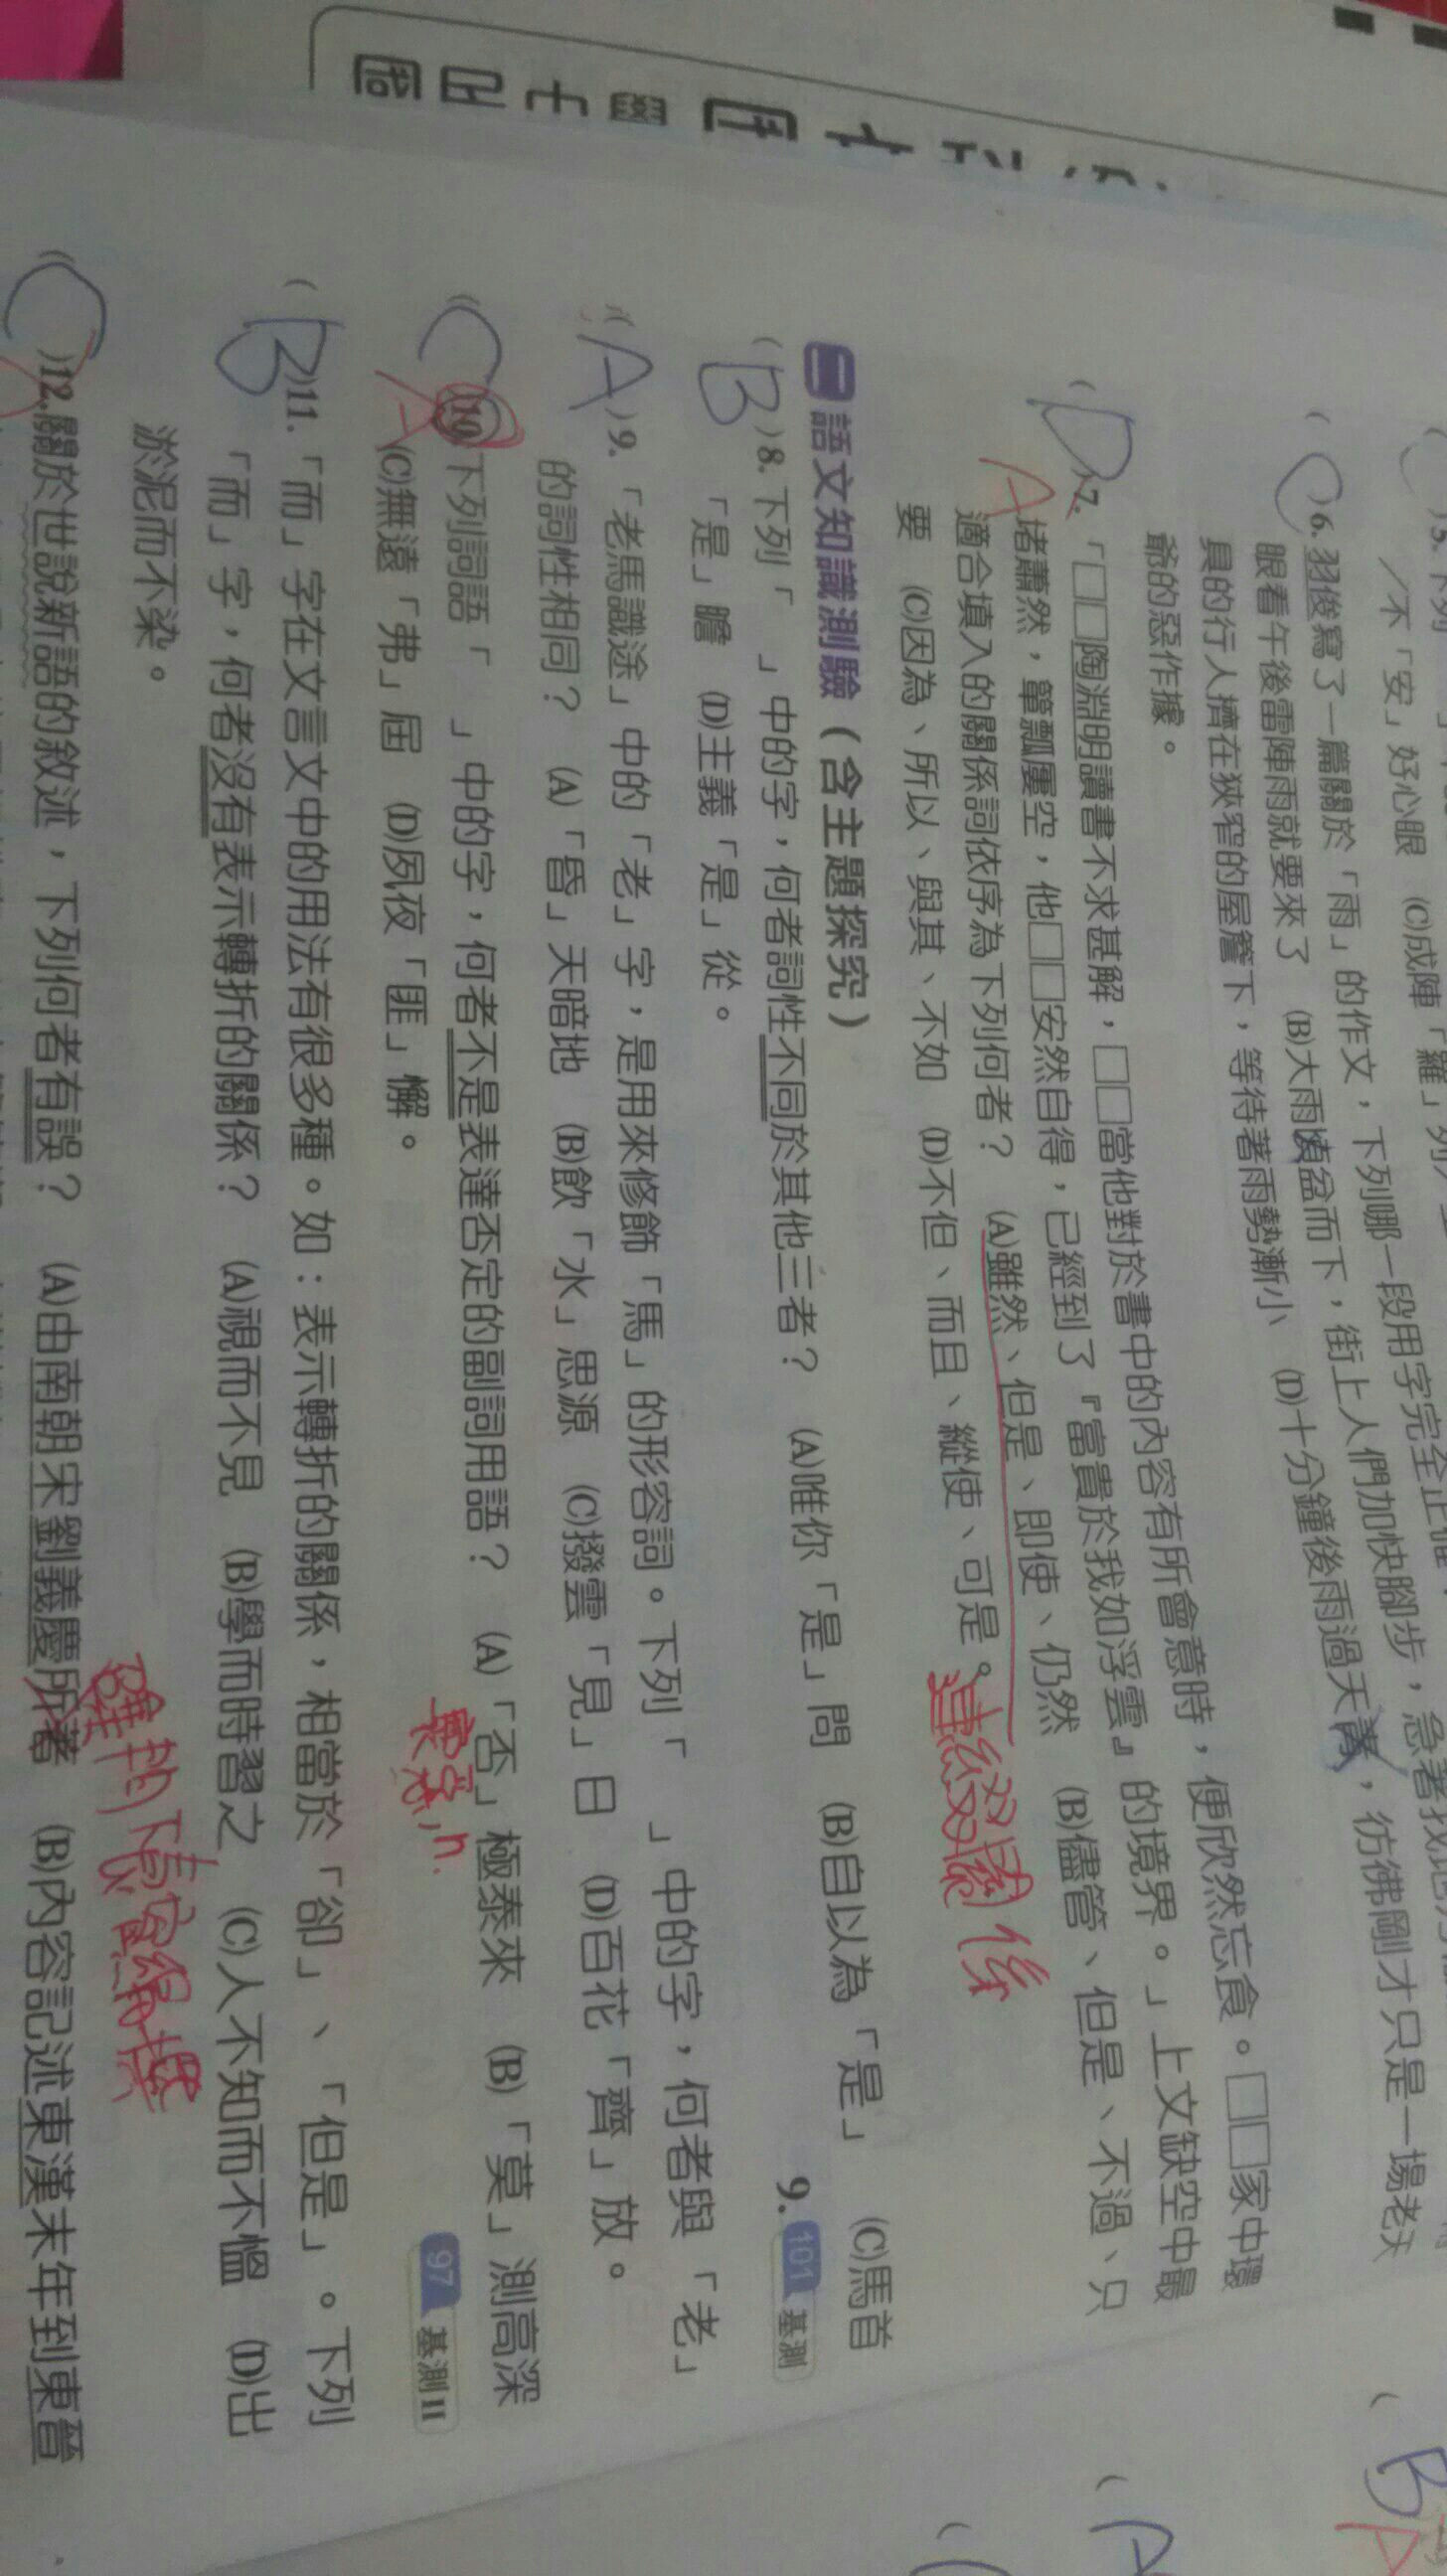 ／不「安」好心眼　(C)成陣「羅」列
C)6. 羽俊寫了一篇關於「雨」的作文，下列哪一段用字完全正確？
眼看午後雷陣雨就要來了　(B)大雨傾盆而下，街上人們加快腳步，急著找地方
員的行人擠在狹窄的屋簷下，等待著雨勢漸小　(D)十分鐘後雨過天青，彷彿剛才只是一場老天
爺的惡作據。
(D)7. 「□□陶淵明讀書不求甚解，□□當他對於書中的內容有所會意時，便欣然忘食。□□家中環
A
堵蕭然，簞瓢屢空，他□□安然自得，已經到了『富貴於我如浮雲』的境界。」上文缺空中最
適合填入的關係詞依序為下列何者？　(A)雖然、但是、即使、仍然　(B)儘管、但是、不過、只
要　(C)因為、所以、與其、不如　(D)不但、而且、縱使、可是。
係
二 語文知識測驗（含主題探究）
(B)8. 下列「　」中的字，何者詞性不同於其他三者？　(A)唯你「是」問　(B)自以為「是」　(C)馬首
「是」瞻　(D)主義「是」從。
9. 101 基測
(A)9. 「老馬識途」中的「老」字，是用來修飾「馬」的形容詞。下列「　」中的字，何者與「老」
的詞性相同？　(A)「昏」天暗地　(B)飲「水」思源　(C)撥雲「見」日　(D)百花「齊」放。
(C)10. 下列詞語「　」中的字，何者不是表達否定的副詞用語？　(A)「否」極泰來　(B)「莫」測高深
A
(C)無遠「弗」屆　(D)夙夜「匪」懈。
n.
97 基測II
(B)11. 「而」字在文言文中的用法有很多種。如：表示轉折的關係，相當於「卻」、「但是」。下列
「而」字，何者沒有表示轉折的關係？　(A)視而不見　(B)學而時習之　(C)人不知而不慍　(D)出
淤泥而不染。
(C)12. 關於世說新語的敘述，下列何者有誤？　(A)由南朝宋劉義慶所著　(B)內容記述東漢末年到東晉
B
A
A